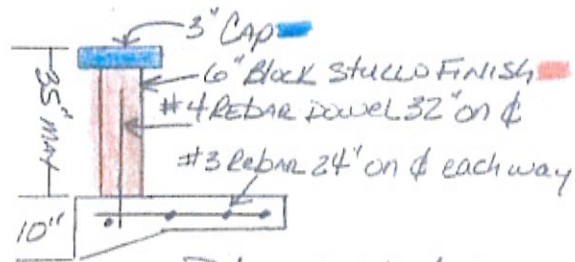 3" CAP
6" BLOCK STUCCO FINISH
#4 REBAR DOWEL 32" on ¢
#3 Rebar 24" on ¢ each way
35" MAX
10"